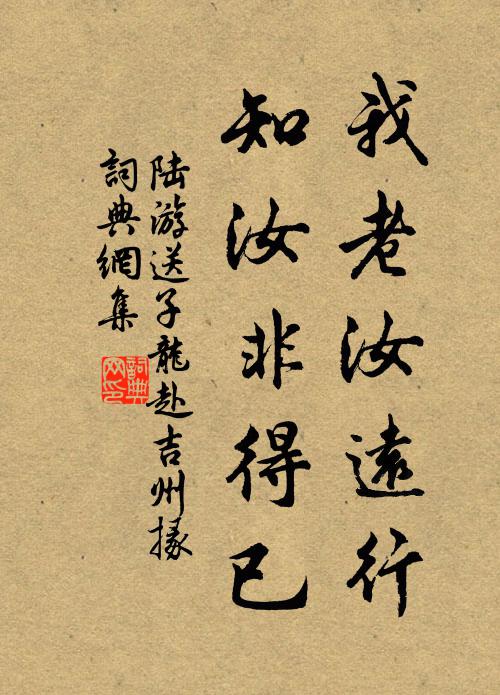 我老汝遠行
知汝非得已
陆游送子龍赴吉州掾
詞典網集
詞典網印